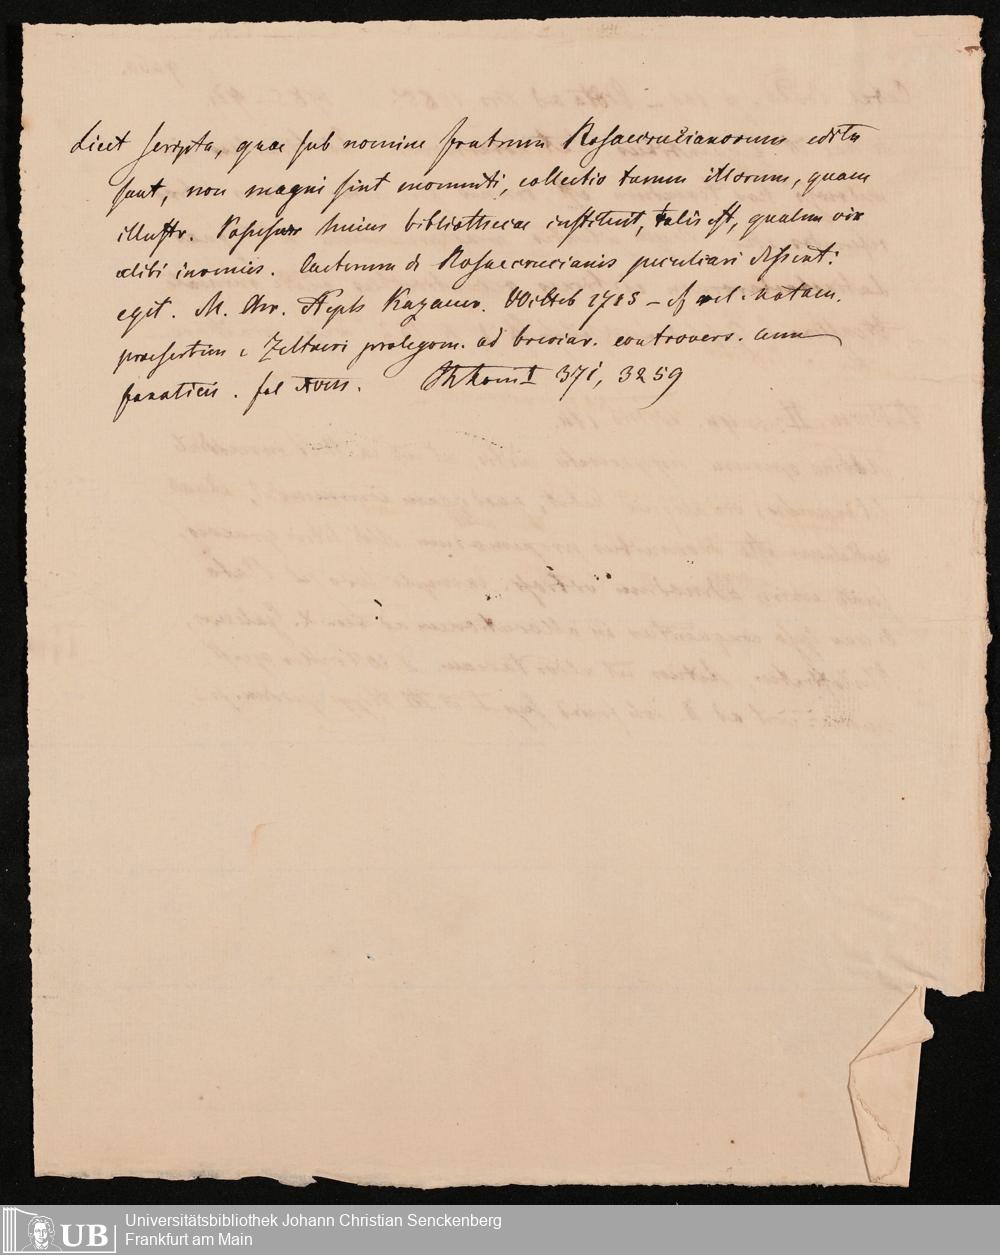 Licet scripta, quae sub nomine fratrum Rosaecrucianorum edita
sunt, non magni sint momenti, collectio tamen illorum, quam
illustr. Possessor huius bibliothecae instituit, talis est, qualem vix
alibi invenies. Caeterum de Rosaecrucianis peculiari dissert:
egit. M. Chr. Steph Kazauer. Witteb 1715 — cf vel. notam.
praesertim Zeltneri prolegom. ad breviar. controvers. cum
fanaticis. fol XVIII. 371, 3259
Universitätsbibliothek Johann Christian Senckenberg
Frankfurt am Main
UB